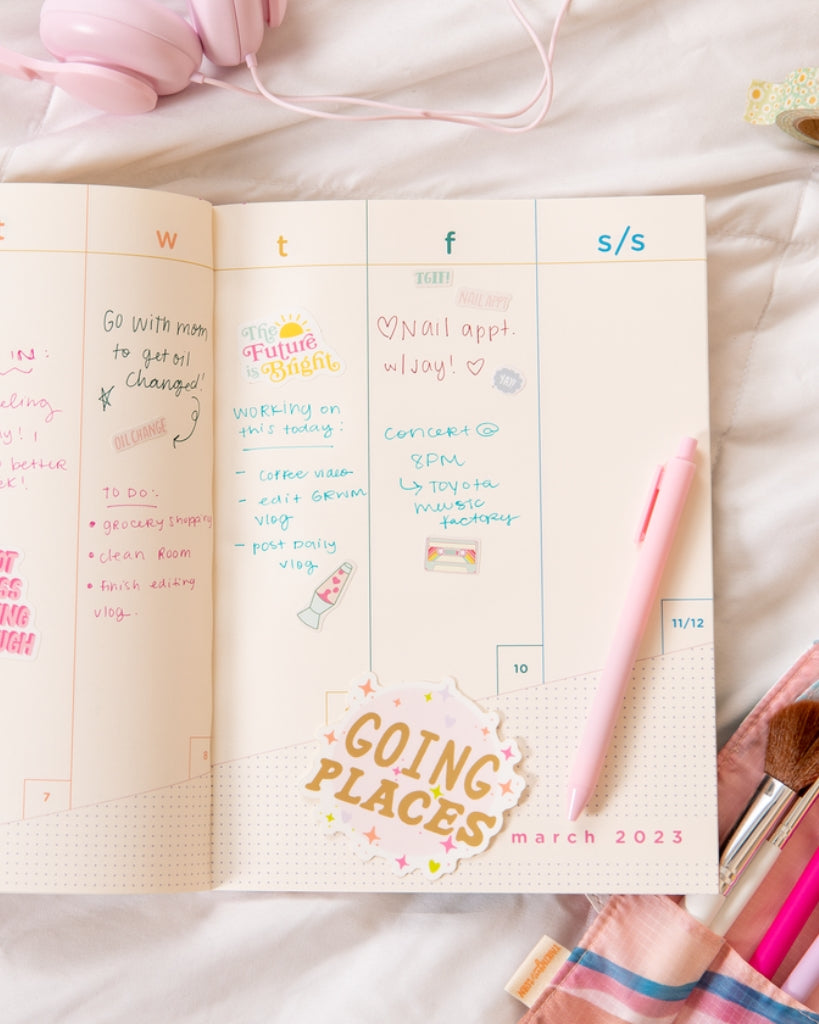 t
w
t
f
s/s
IN:
eling
y! I
better
ek!
OT
SS
ING
UGH
7
Go with mom
to get oil
changed!
OIL CHANGE
TO DO:
• grocery shopping
• clean Room
• finish editing
vlog.
8
The
Future
is Bright
working on
this today:
- coffee video
- edit GRWM
vlog
- post Daily
vlog
TGIF!
NAIL APPT
♡Nail appt.
w/Jay! ♡
YAY!
concert @
8PM
↳ Toyota
music
factory
10
11/12
GOING
PLACES
march 2023